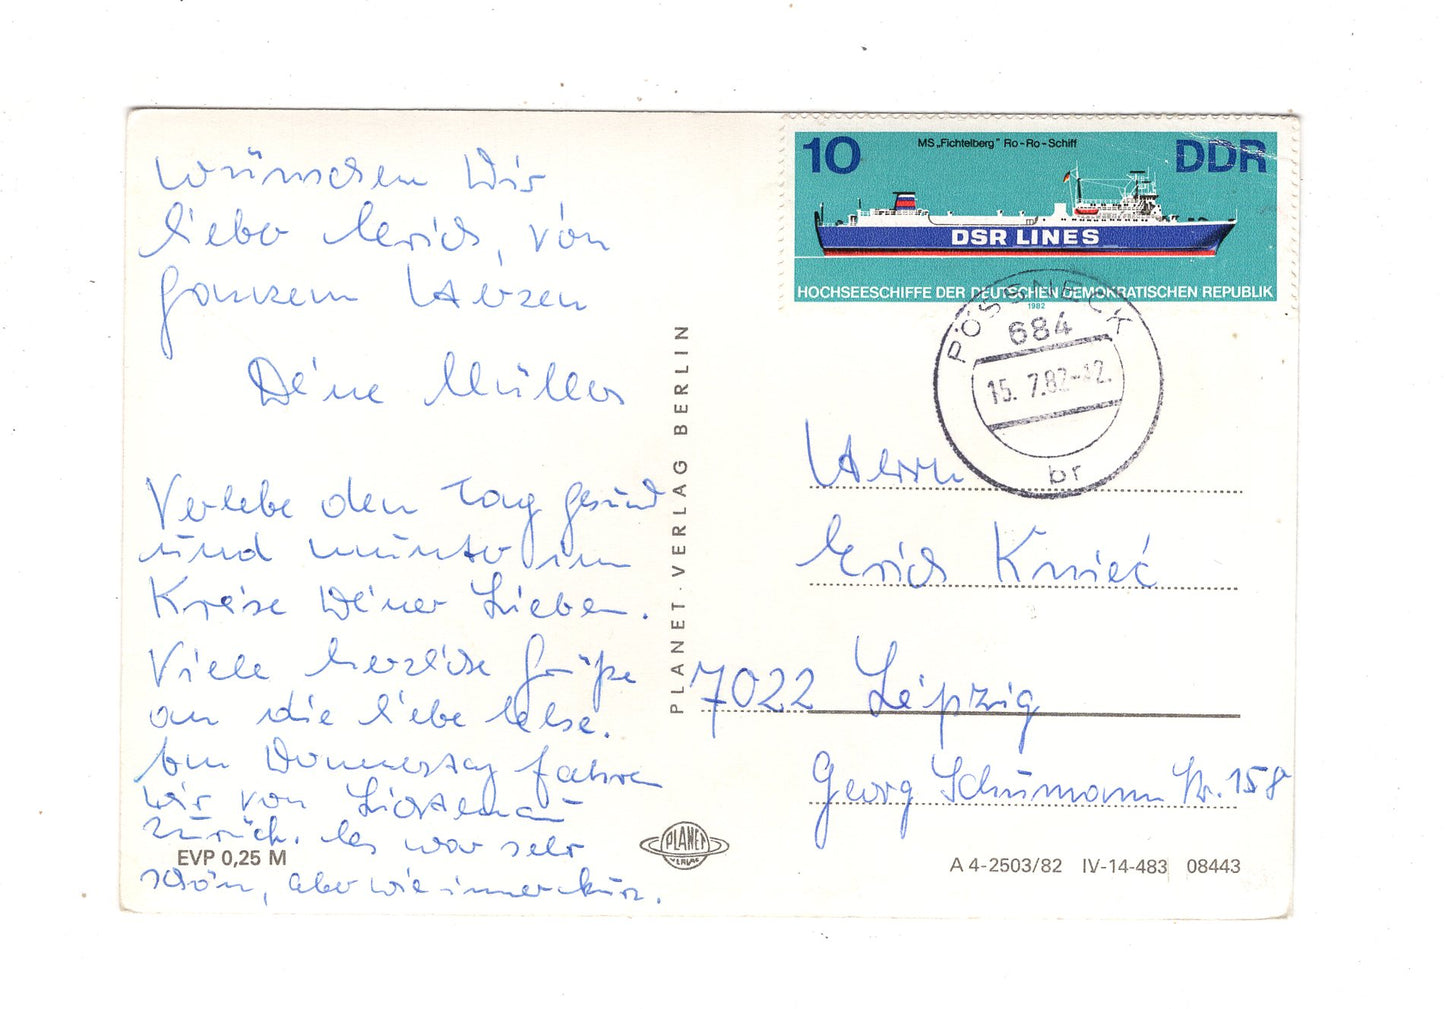 wünschen Wir
lieber Erich, von
ganzem Herzen
Deine Müller
Verlebe den Tag gesund
und munter im
Kreise Deiner Lieben.
Viele herzliche Grüße
an die liebe Else.
Am Donnerstag fahren
wir von
zurück. Es war sehr
schön, aber wie immer kurz.
EVP 0,25 M
PLANET-VERLAG BERLIN
PLANET
VERLAG
10
MS „Fichtelberg" Ro-Ro-Schiff
DDR
DSR LINES
HOCHSEESCHIFFE DER DEUTSCHEN DEMOKRATISCHEN REPUBLIK
1982
PÖSSNECK
684
15. 7.82-12.
br
Herrn
Erich
7022 Leipzig
Georg Schumann Str. 158
A 4-2503/82 IV-14-483 08443